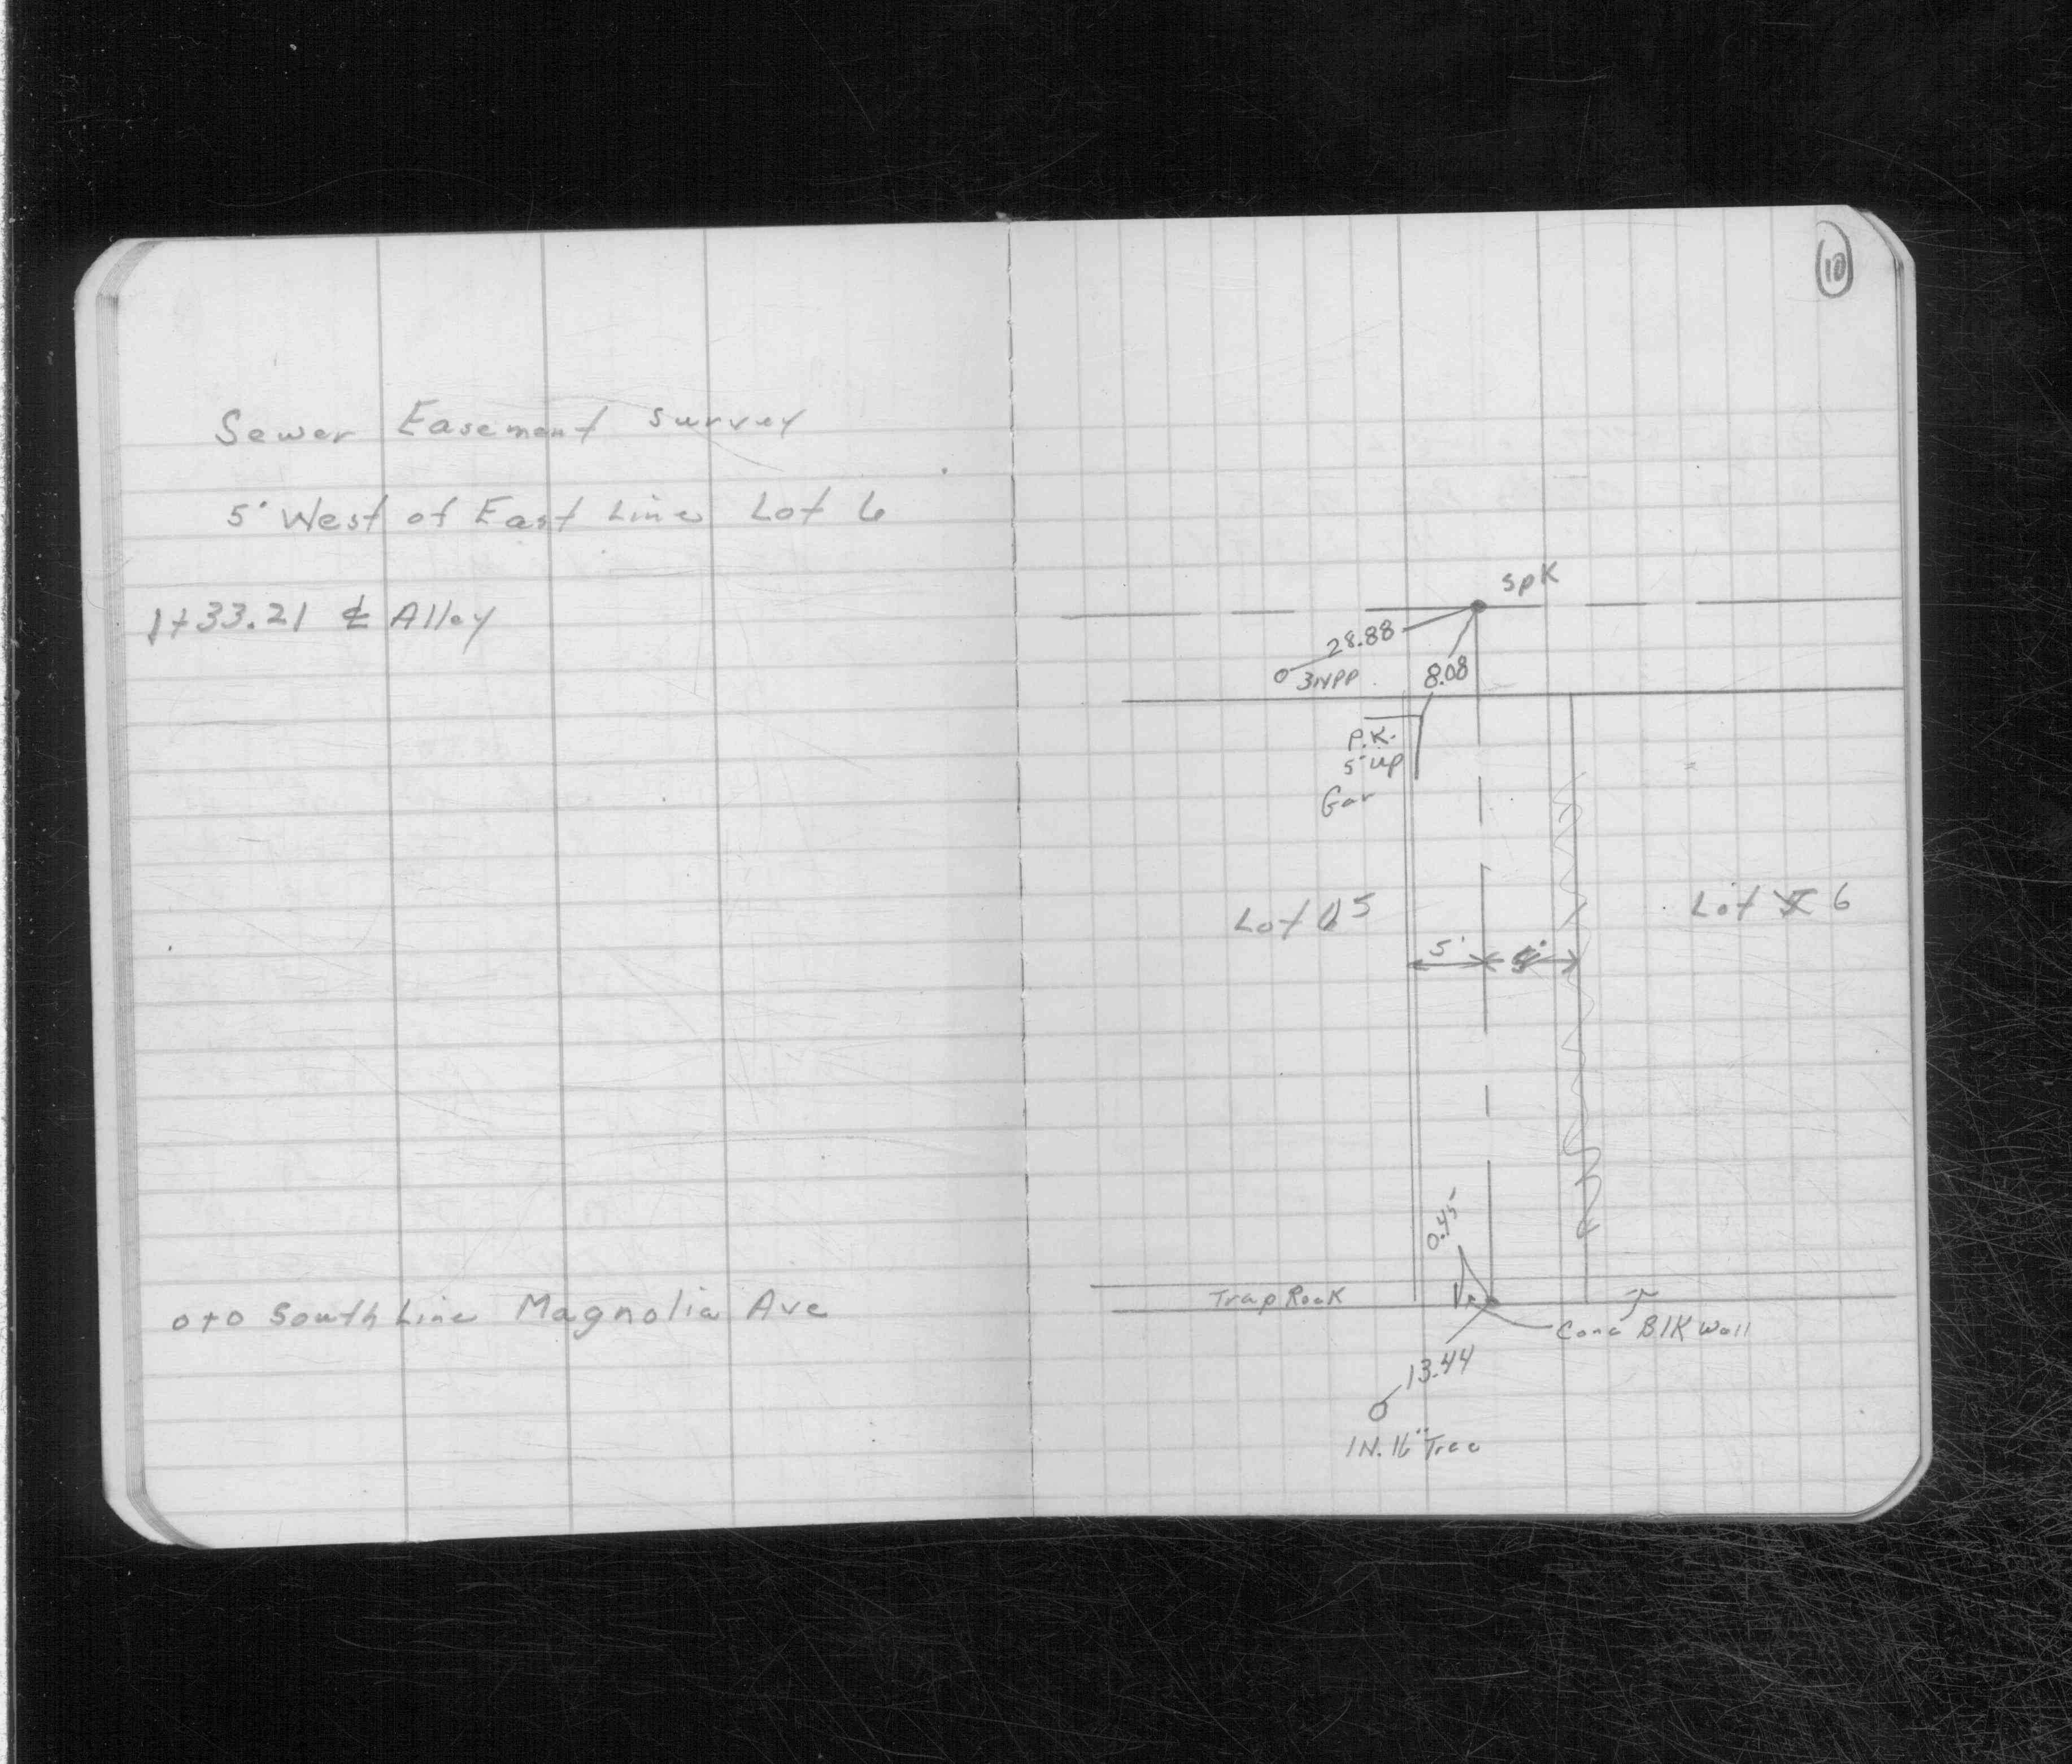 Sewer Easement Survey
5' West of East Line Lot 6
1+33.21 ℄ Alley
0+0 South Line Magnolia Ave
10
Spk
28.88
3NPP
8.08
P.K.
5' up
Gar
Lot 5
Lot 6
5'
0.45'
Trap Rock
Conc Blk Wall
13.44
1N. 16" Tree